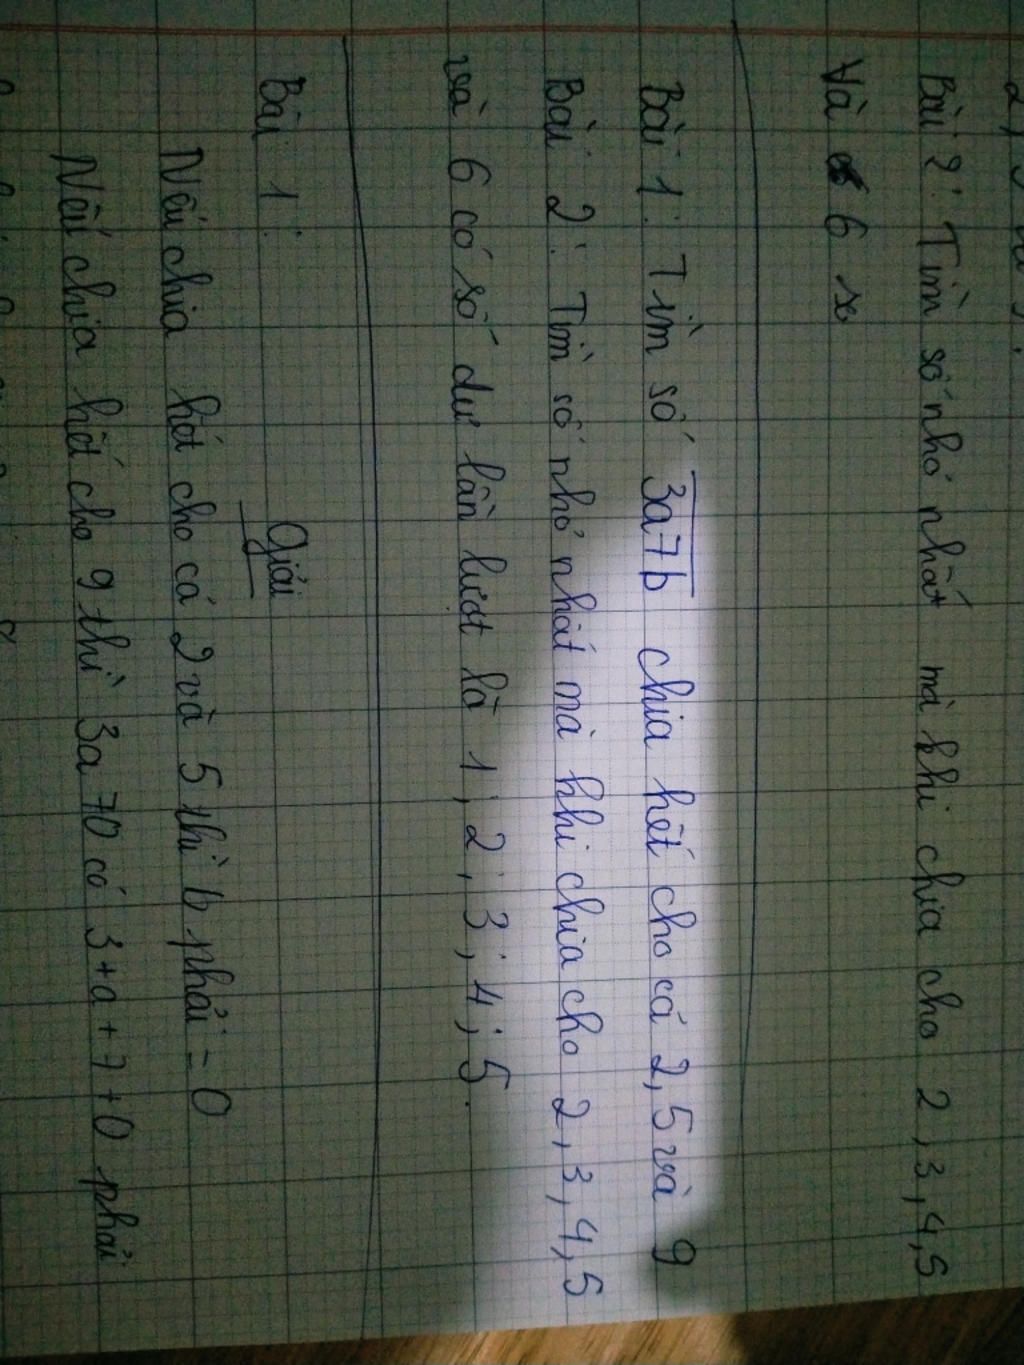 Bài 2: Tìm số nhỏ nhất mà khi chia cho 2, 3, 4, 5
Và 6
Bài 1: Tìm số 3a7b chia hết cho cả 2, 5 và 9
Bài 2: Tìm số nhỏ nhất mà khi chia cho 2, 3, 4, 5
và 6 có số dư lần lượt là 1, 2, 3; 4; 5.
Giải
Bài 1:
Nếu chia hết cho cả 2 và 5 thì b phải = 0
Nếu chia hết cho 9 thì 3a70 có 3+a+7+0 phải